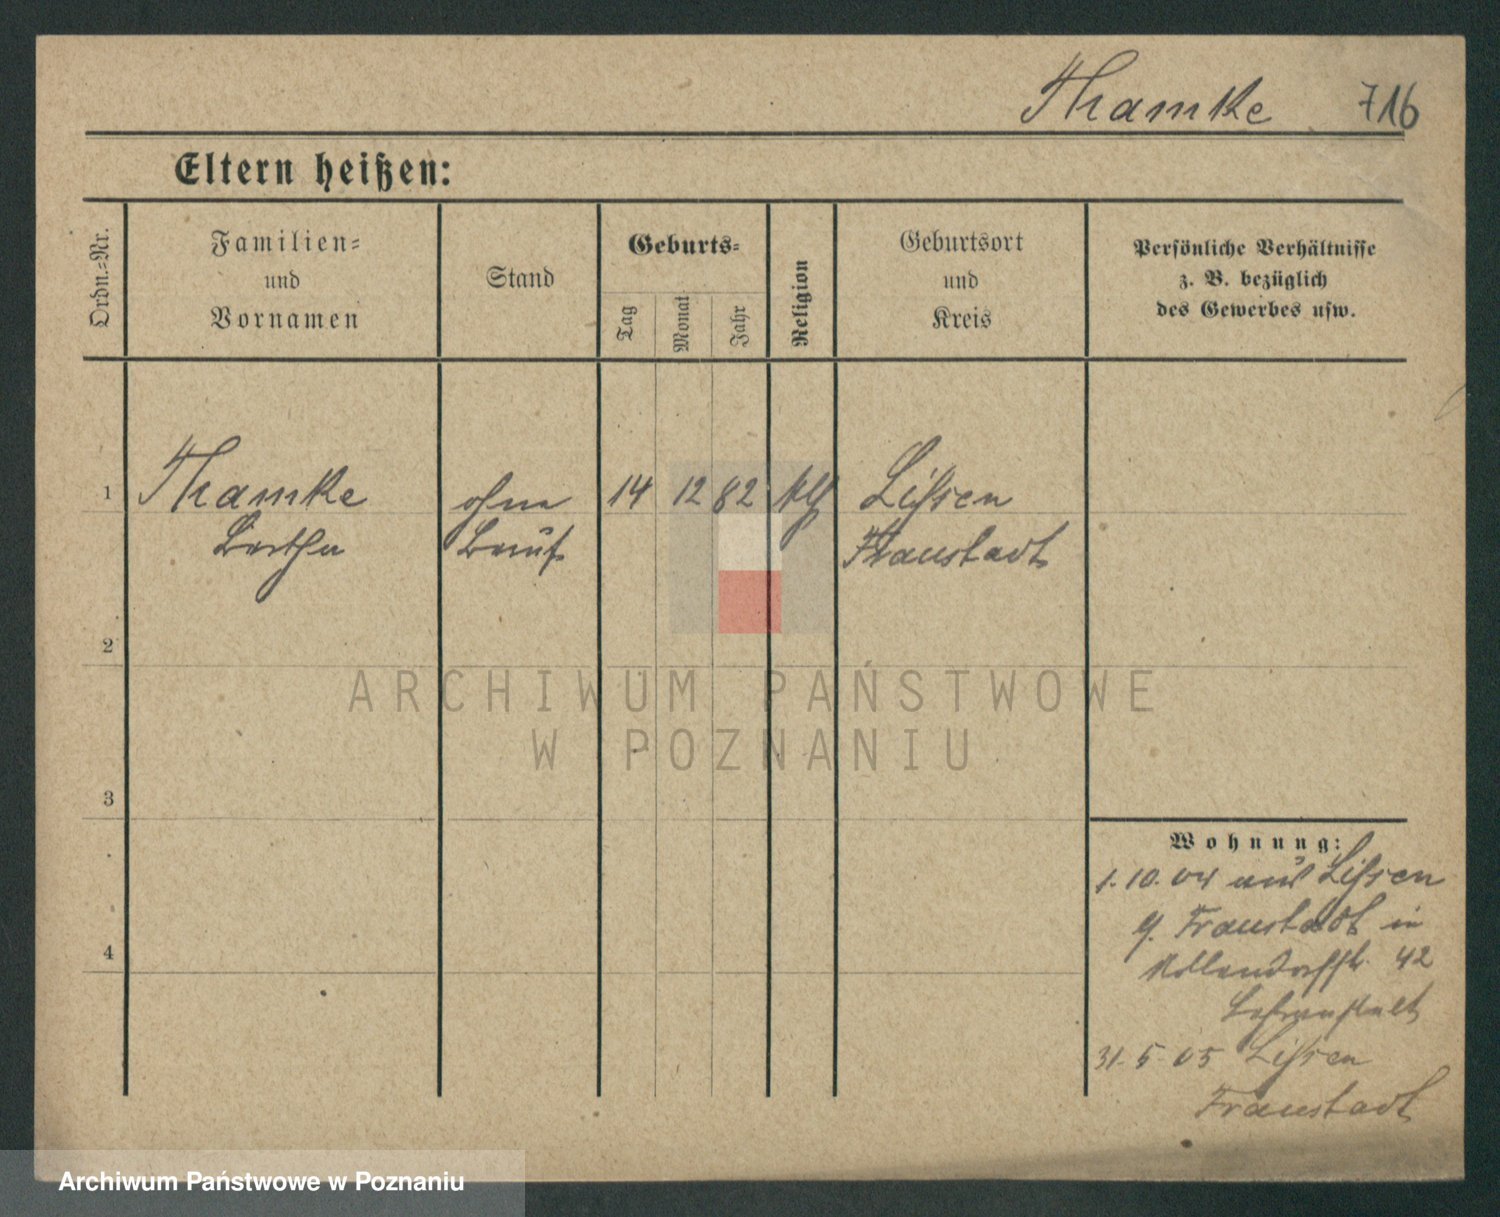 Thamke 716
Eltern heißen:
Ordn.-Nr.
Familien-
und
Vornamen
Stand
Geburts-
Tag
Monat
Jahr
Religion
Geburtsort
und
Kreis
Persönliche Verhältnisse
z. B. bezüglich
des Gewerbes usw.
1 Thamke ohne 14 12 82 Lissen
Bertha Beruf Fraustadt
2
3
4
Wohnung:
1.10.04 aus Lissen
Fraustadt in
42
31.5.05 Lissen
Fraustadt
ARCHIWUM PAŃSTWOWE
W POZNANIU
Archiwum Państwowe w Poznaniu